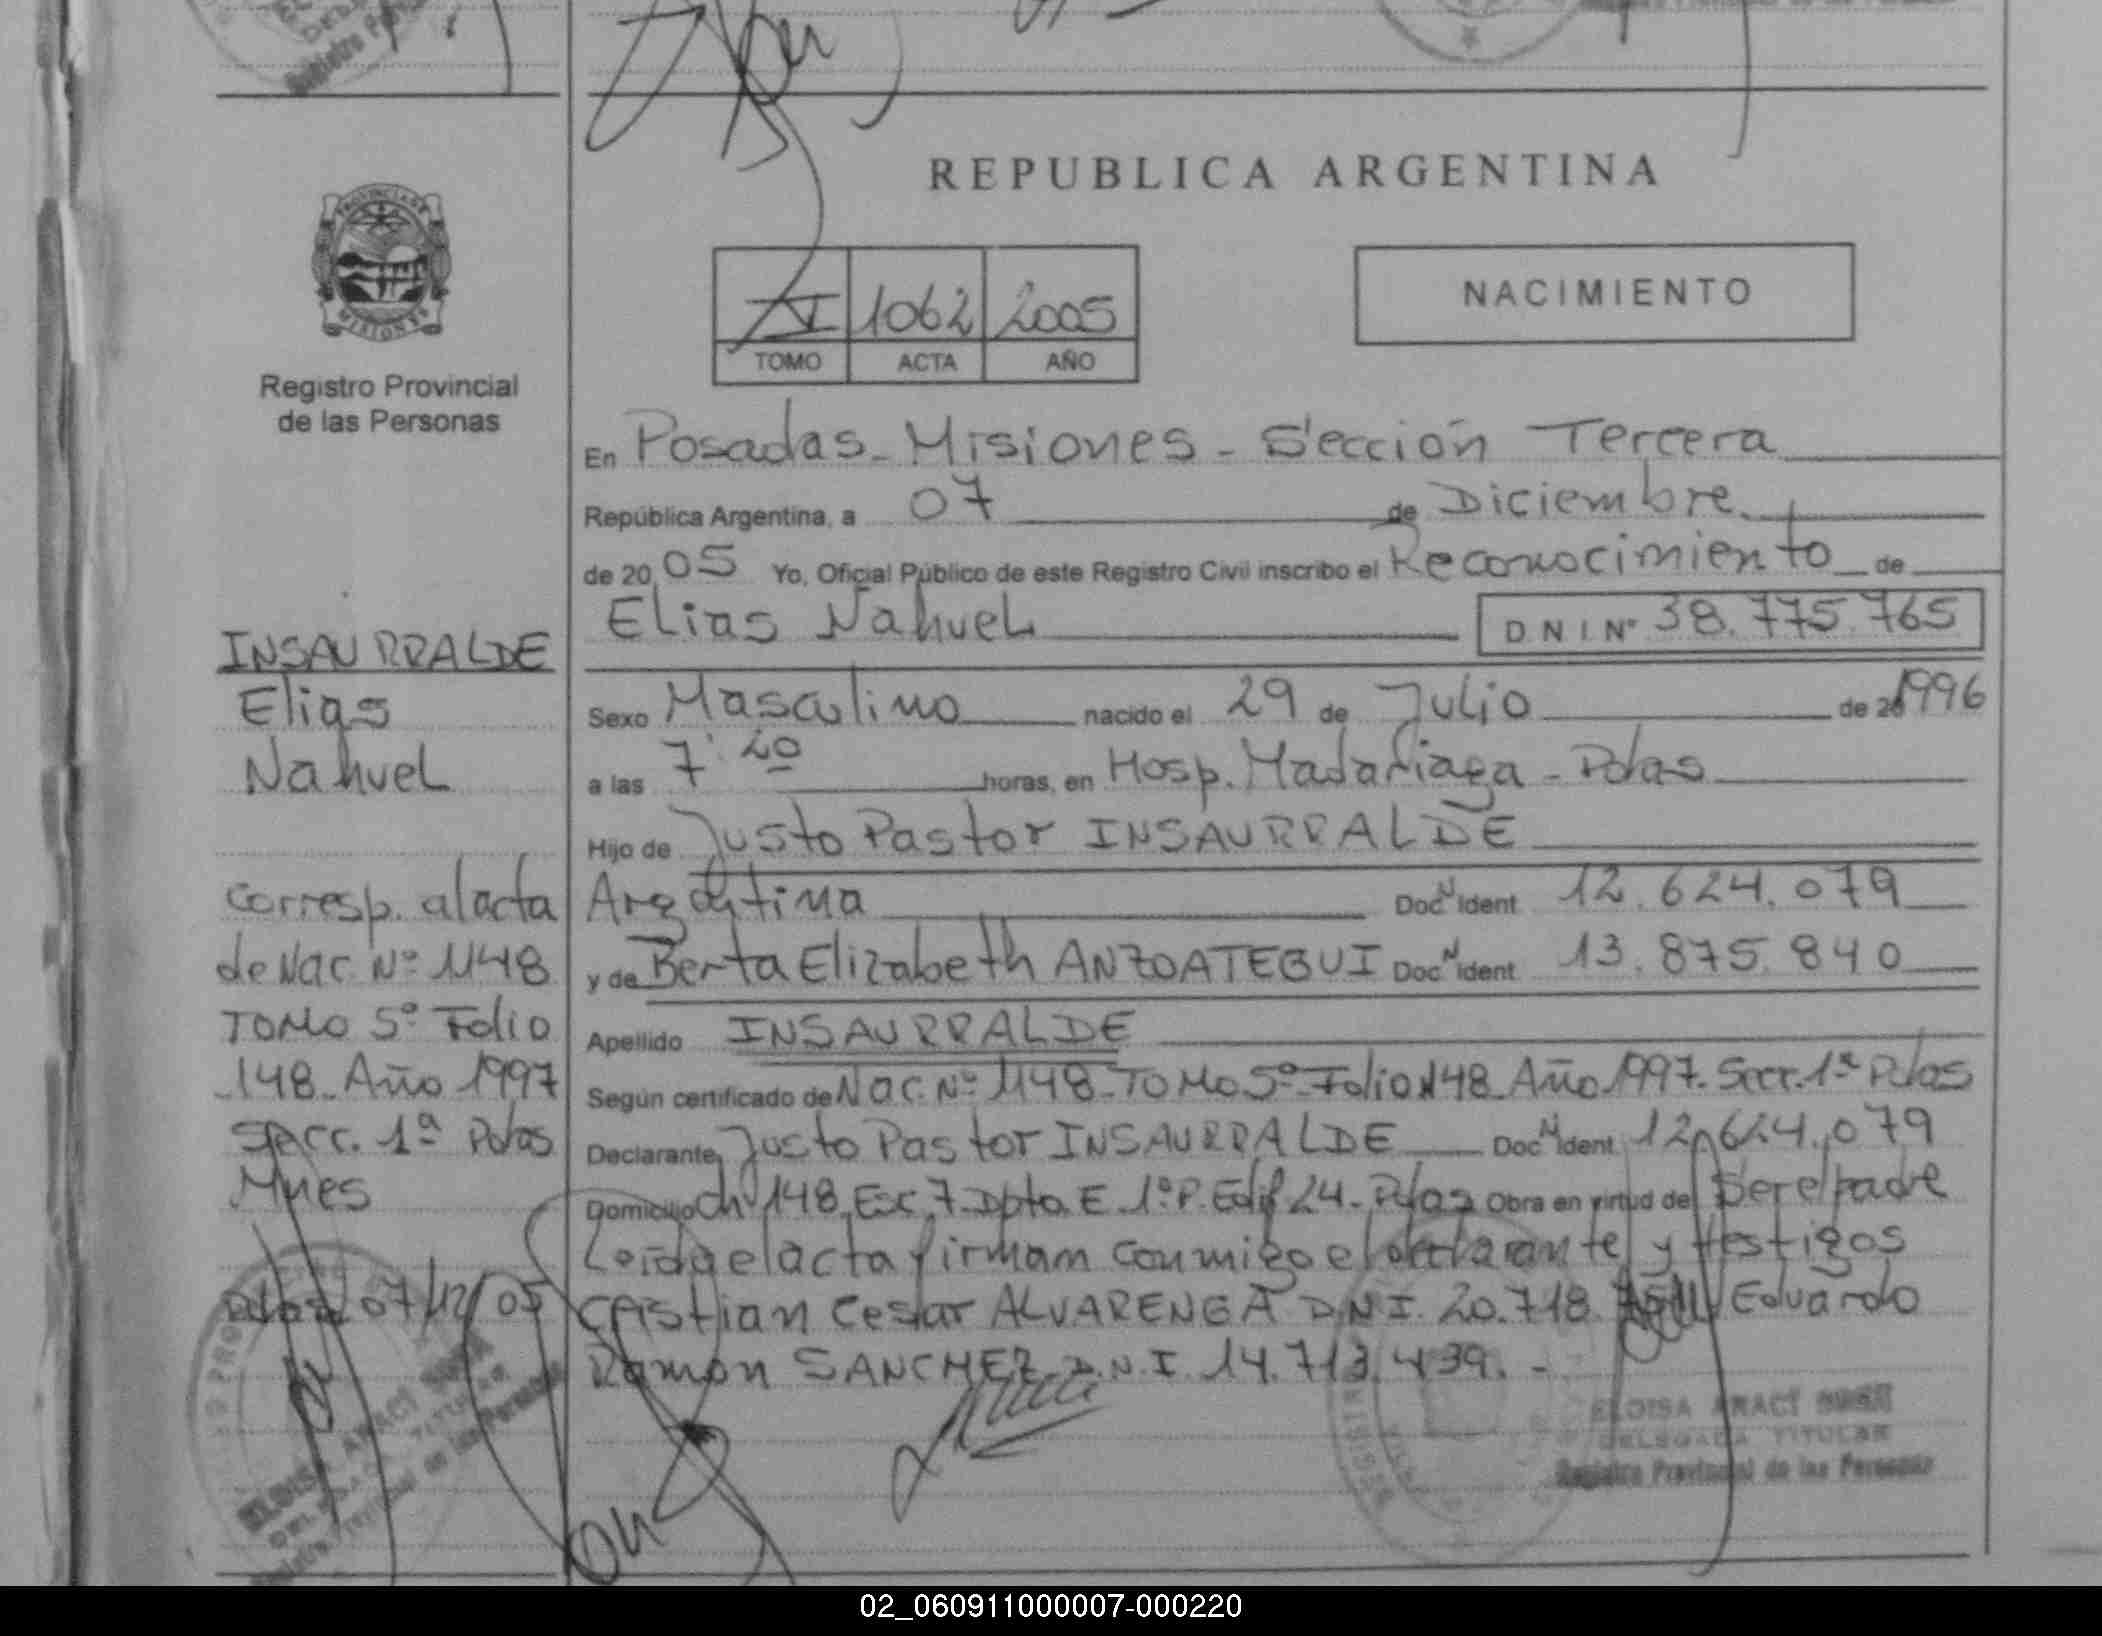 REPUBLICA ARGENTINA
PROVINCIA DE
MISIONES
Registro Provincial
de las Personas
1062 2005
TOMO ACTA AÑO
NACIMIENTO
En Posadas - Misiones - Sección Tercera
República Argentina, a 07 de Diciembre
de 20 05 Yo, Oficial Público de este Registro Civil inscribo el Reconocimiento de
Elias Nahuel D N I Nº 38.775.765
Sexo Masculino nacido el 29 de Julio de 1996
a las 7:20 horas, en Hosp. Madariaga - Pdas
Hijo de Justo Pastor INSAURRALDE
Argentina Doc N Ident 12.624.079
y de Berta Elizabeth ANZOATEGUI Doc N Ident 13.875.840
Apellido INSAURRALDE
Según certificado de Nac. Nº 1148 - TOMO 5º - Folio 148 Año 1997. Secc. 1ª Pdas
Declarante Justo Pastor INSAURRALDE Doc N Ident 12.624.079
Domicilio Ch 148 Esc. 7 - Dpto. E 1º P. Edif 24 - Pdas Obra en virtud de Ser el padre
Leida el acta firman conmigo el declarante y testigos
Cristian Cesar ALVARENGA D.N.I. 20.718. Eduardo
Ramon SANCHEZ D.N.I. 14.713.439. -
INSAURRALDE
Elias
Nahuel
Corresp. al acta
de Nac Nº 1148
TOMO 5º Folio
148 - Año 1997
Secc. 1ª Pdas
Mnes
Pdas 07/12/05
ELOISA ARACI
DELEGADA TITULAR
Registro Provincial de las Personas
ELOISA ARACI
DELEGADA TITULAR
Registro Provincial de las Personas
02_060911000007-000220